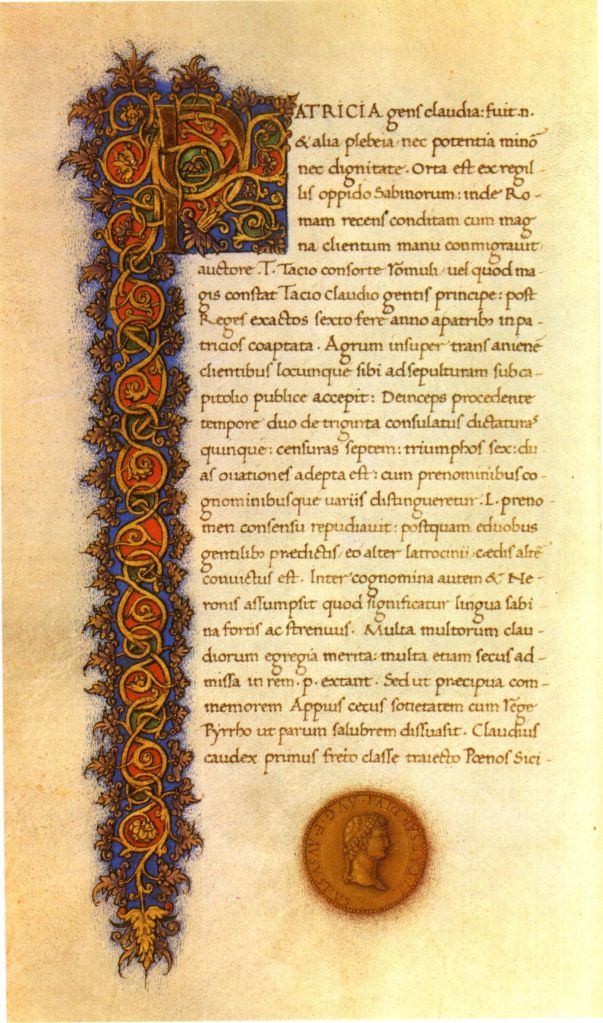 PATRICIA gens claudia: fuit .n.
& alia plebeia: nec potentia minō
nec dignitate. Orta est ex regil-
lis oppido Sabinorum: inde Ro-
mam recens conditam cum mag
na clientum manu conmigrauit
auctore .T. Tacio consorte romuli: uel quod ma-
gis constat Tacio claudio gentis principe: post
Reges exactos sexto fere anno a patribꝫ in pa-
tricios coaptata. Agrum insuper trans anienē
clientibus locumque sibi ad sepulturam sub ca-
pitolio publice accepit: Deinceps procedente
tempore duo de triginta consulatus dictaturas
quinque: censuras septem: triumphos sex: du-
as ouationes adepta est: cum prenominibus co-
gnominibusque variis distingueretur. L. preno
men consensu repudiauit: postquam e duobus
gentilibꝫ prædictis: eo alter latrocinii cædis altē
conuictus est. Inter cognomina autem & Ne-
ronis assumpsit quod significatur lingua sabi
na fortis ac strenuus. Multa multorum clau-
diorum egregia merita: multa etiam secus ad-
missa in rem .p. extant. Sed ut præcipua com-
memorem Appius cecus societatem cum rege
Pyrrho ut parum salubrem dissuasit. Claudius
caudex primus freto classe traiecto Pœnos Sici-
DIVI AVG F